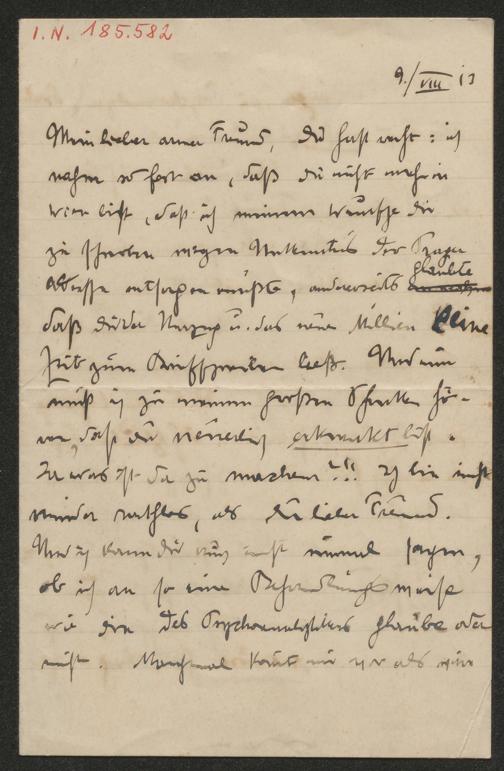 I. N. 185.582
9./VIII 13
Mein lieber armer Freund, du hast recht: ich
nahm sofort an, daß du nicht mehr in
Wien bist, daß ich meinem Wunsche dir
zu schreiben wegen Unkenntnis der Prager
Adresse entsagen mußte, anderseits glaubte
daß dir der Umzug u. das neue Milieu keine
Zeit zum Briefschreiben ließ. Und nun
muß ich zu meinem großen Schrecken hö-
ren, daß du neuerdings erkrankt bist.
Ja was ist da zu machen?!! Ich bin nicht
minder rathlos, als du lieber Freund.
Und ich kann dir auch nicht einmal sagen,
ob ich an so eine Behandlungsweise
wie die des Psychoanalytikers glaube oder
nicht. Manchmal kommt mir vor als wäre